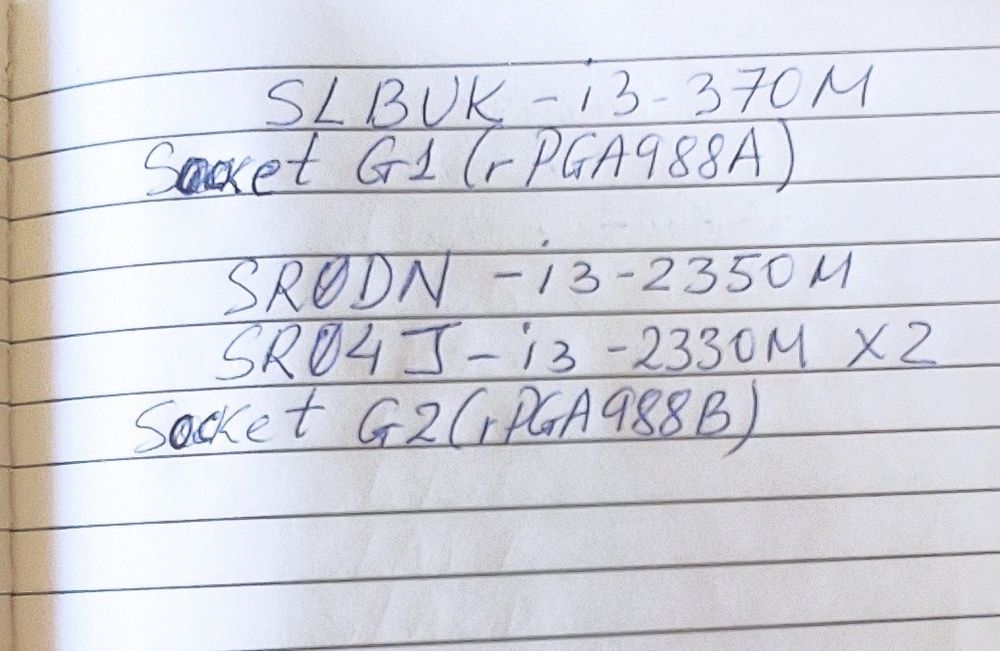 SLBUK - i3-370M
Socket G1 (rPGA988A)
SR0DN - i3-2350M
SR04J - i3 -2330M X2
Socket G2 (rPGA988B)